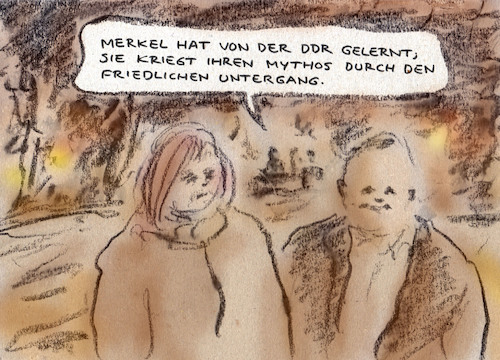 MERKEL HAT VON DER DDR GELERNT,
SIE KRIEGT IHREN MYTHOS DURCH DEN
FRIEDLICHEN UNTERGANG.